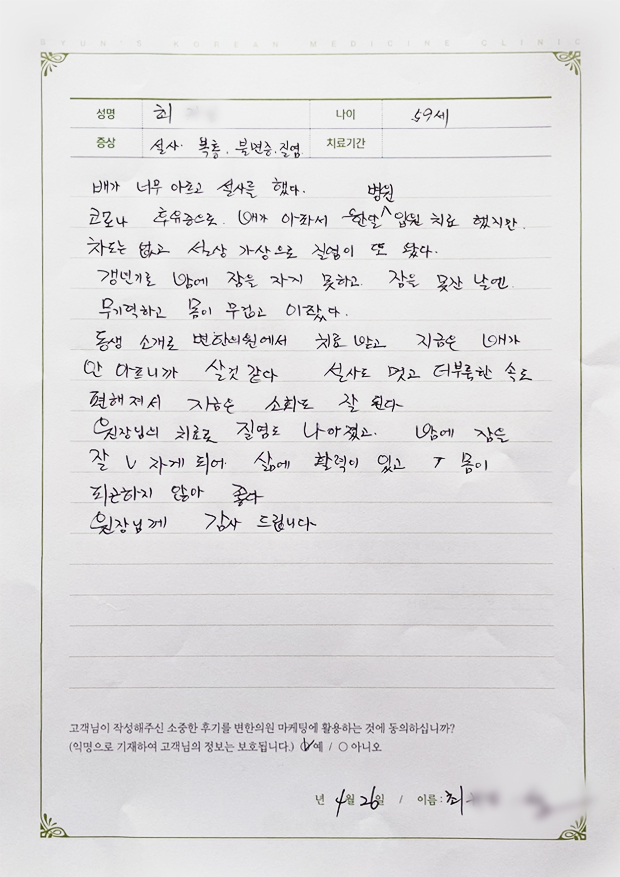 BYUN'S KOREAN MEDICINE CLINIC
성명 최 나이 59세
증상 설사. 복통. 불면증. 질염 치료기간
배가 너무 아프고 설사를 했다.
병원
코로나 후유증으로. 배가 아파서 한달 입원 치료 했지만.
차도는 없고 설상 가상으로 질염이 또 왔다.
갱년기로 밤에 잠을 자지 못하고. 잠을 못잔 날엔.
무기력하고 몸이 무겁고 아팠다.
동생 소개로 변한의원에서 치료 받고 지금은 배가
안 아프니까 살것 같다 설사도 멎고 더부룩한 속도
편해져서 지금은 소화도 잘 된다
원장님의 치료로 질염도 나아졌고. 밤에 잠을
잘 자게 되어 삶에 활력이 있고 몸이
피곤하지 않아 좋다
원장님께 감사 드립니다
고객님이 작성해주신 소중한 후기를 변한의원 마케팅에 활용하는 것에 동의하십니까?
(익명으로 기재하여 고객님의 정보는 보호됩니다.) ○예 / ○아니오
년 4월 26일 / 이름: 최